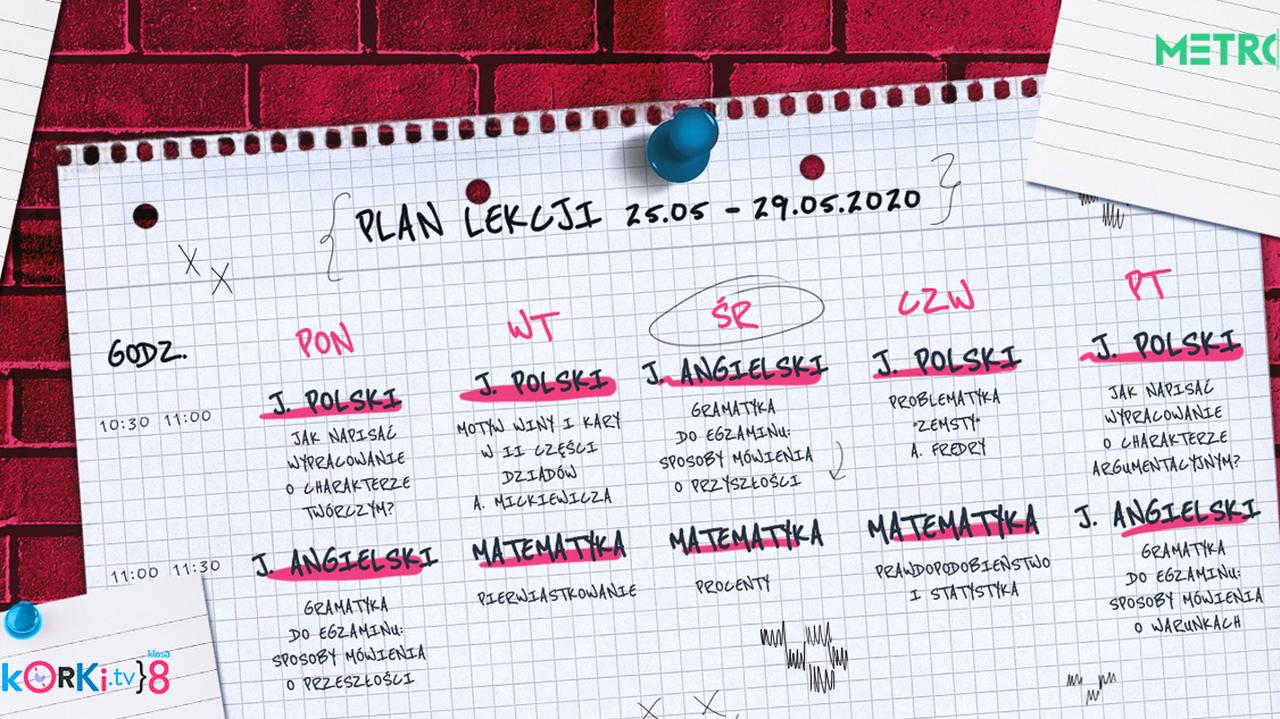 METRO
PLAN LEKCJI 25.05 - 29.05.2020
GODZ.
PON
WT
ŚR
CZW
PT
10:30 11:00
J. POLSKI
JAK NAPISAĆ
WYPRACOWANIE
O CHARAKTERZE
TWÓRCZYM?
J. POLSKI
MOTYW WINY I KARY
W II CZĘŚCI
DZIADÓW
A. MICKIEWICZA
J. ANGIELSKI
GRAMATYKA
DO EGZAMINU:
SPOSOBY MÓWIENIA
O PRZYSZŁOŚCI
J. POLSKI
PROBLEMATYKA
"ZEMSTY"
A. FREDRY
J. POLSKI
JAK NAPISAĆ
WYPRACOWANIE
O CHARAKTERZE
ARGUMENTACYJNYM?
11:00 11:30
J. ANGIELSKI
GRAMATYKA
DO EGZAMINU:
SPOSOBY MÓWIENIA
O PRZESZŁOŚCI
MATEMATYKA
PIERWIASTKOWANIE
MATEMATYKA
PROCENTY
MATEMATYKA
PRAWDOPODOBIEŃSTWO
I STATYSTYKA
J. ANGIELSKI
GRAMATYKA
DO EGZAMINU:
SPOSOBY MÓWIENIA
O WARUNKACH
kORKi.tv}8
klasa